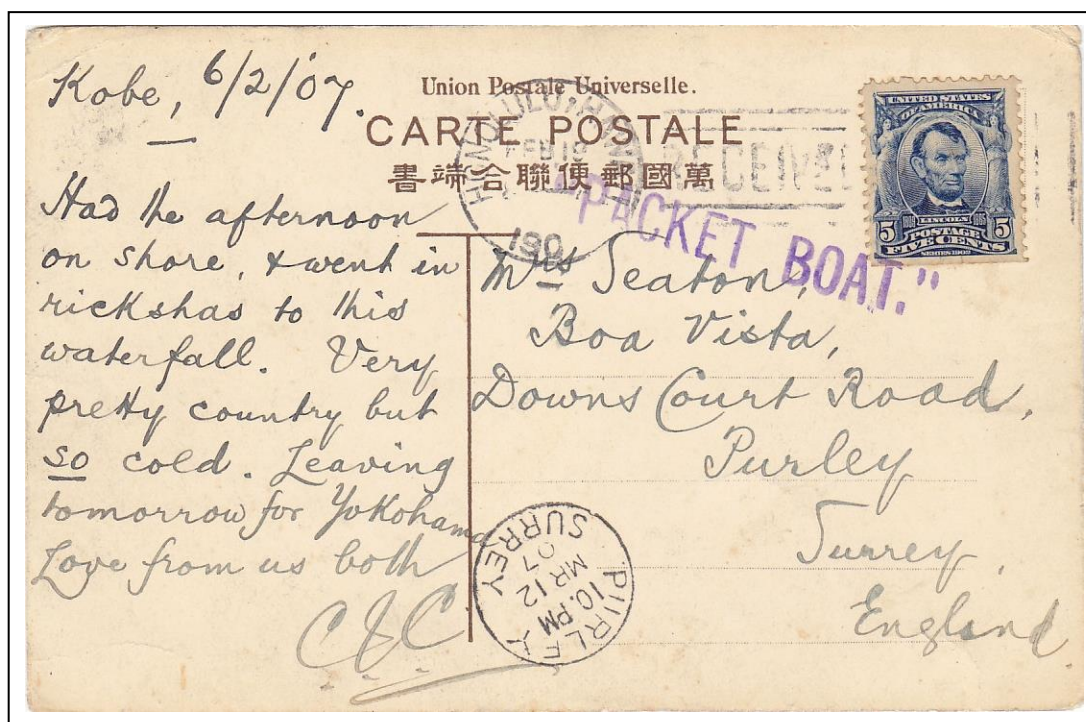 Kobe, 6/2/07.
Union Postale Universelle.
CARTE POSTALE
書端合聯便郵國萬
HONOLULU, HAWAII
FEB 19
190
RECEIVED
UNITED STATES
OF AMERICA
LINCOLN
5 POSTAGE 5
FIVE CENTS
SERIES 1902
"PACKET BOAT."
Had the afternoon
on shore, & went in
rickshas to this
waterfall. Very
pretty country but
so cold. Leaving
tomorrow for Yokohama
Love from us both
C&C
Mrs Seaton,
Boa Vista,
Downs Court Road,
Purley
Surrey
England
PURLEY
10. PM
MR 12
07
SURREY